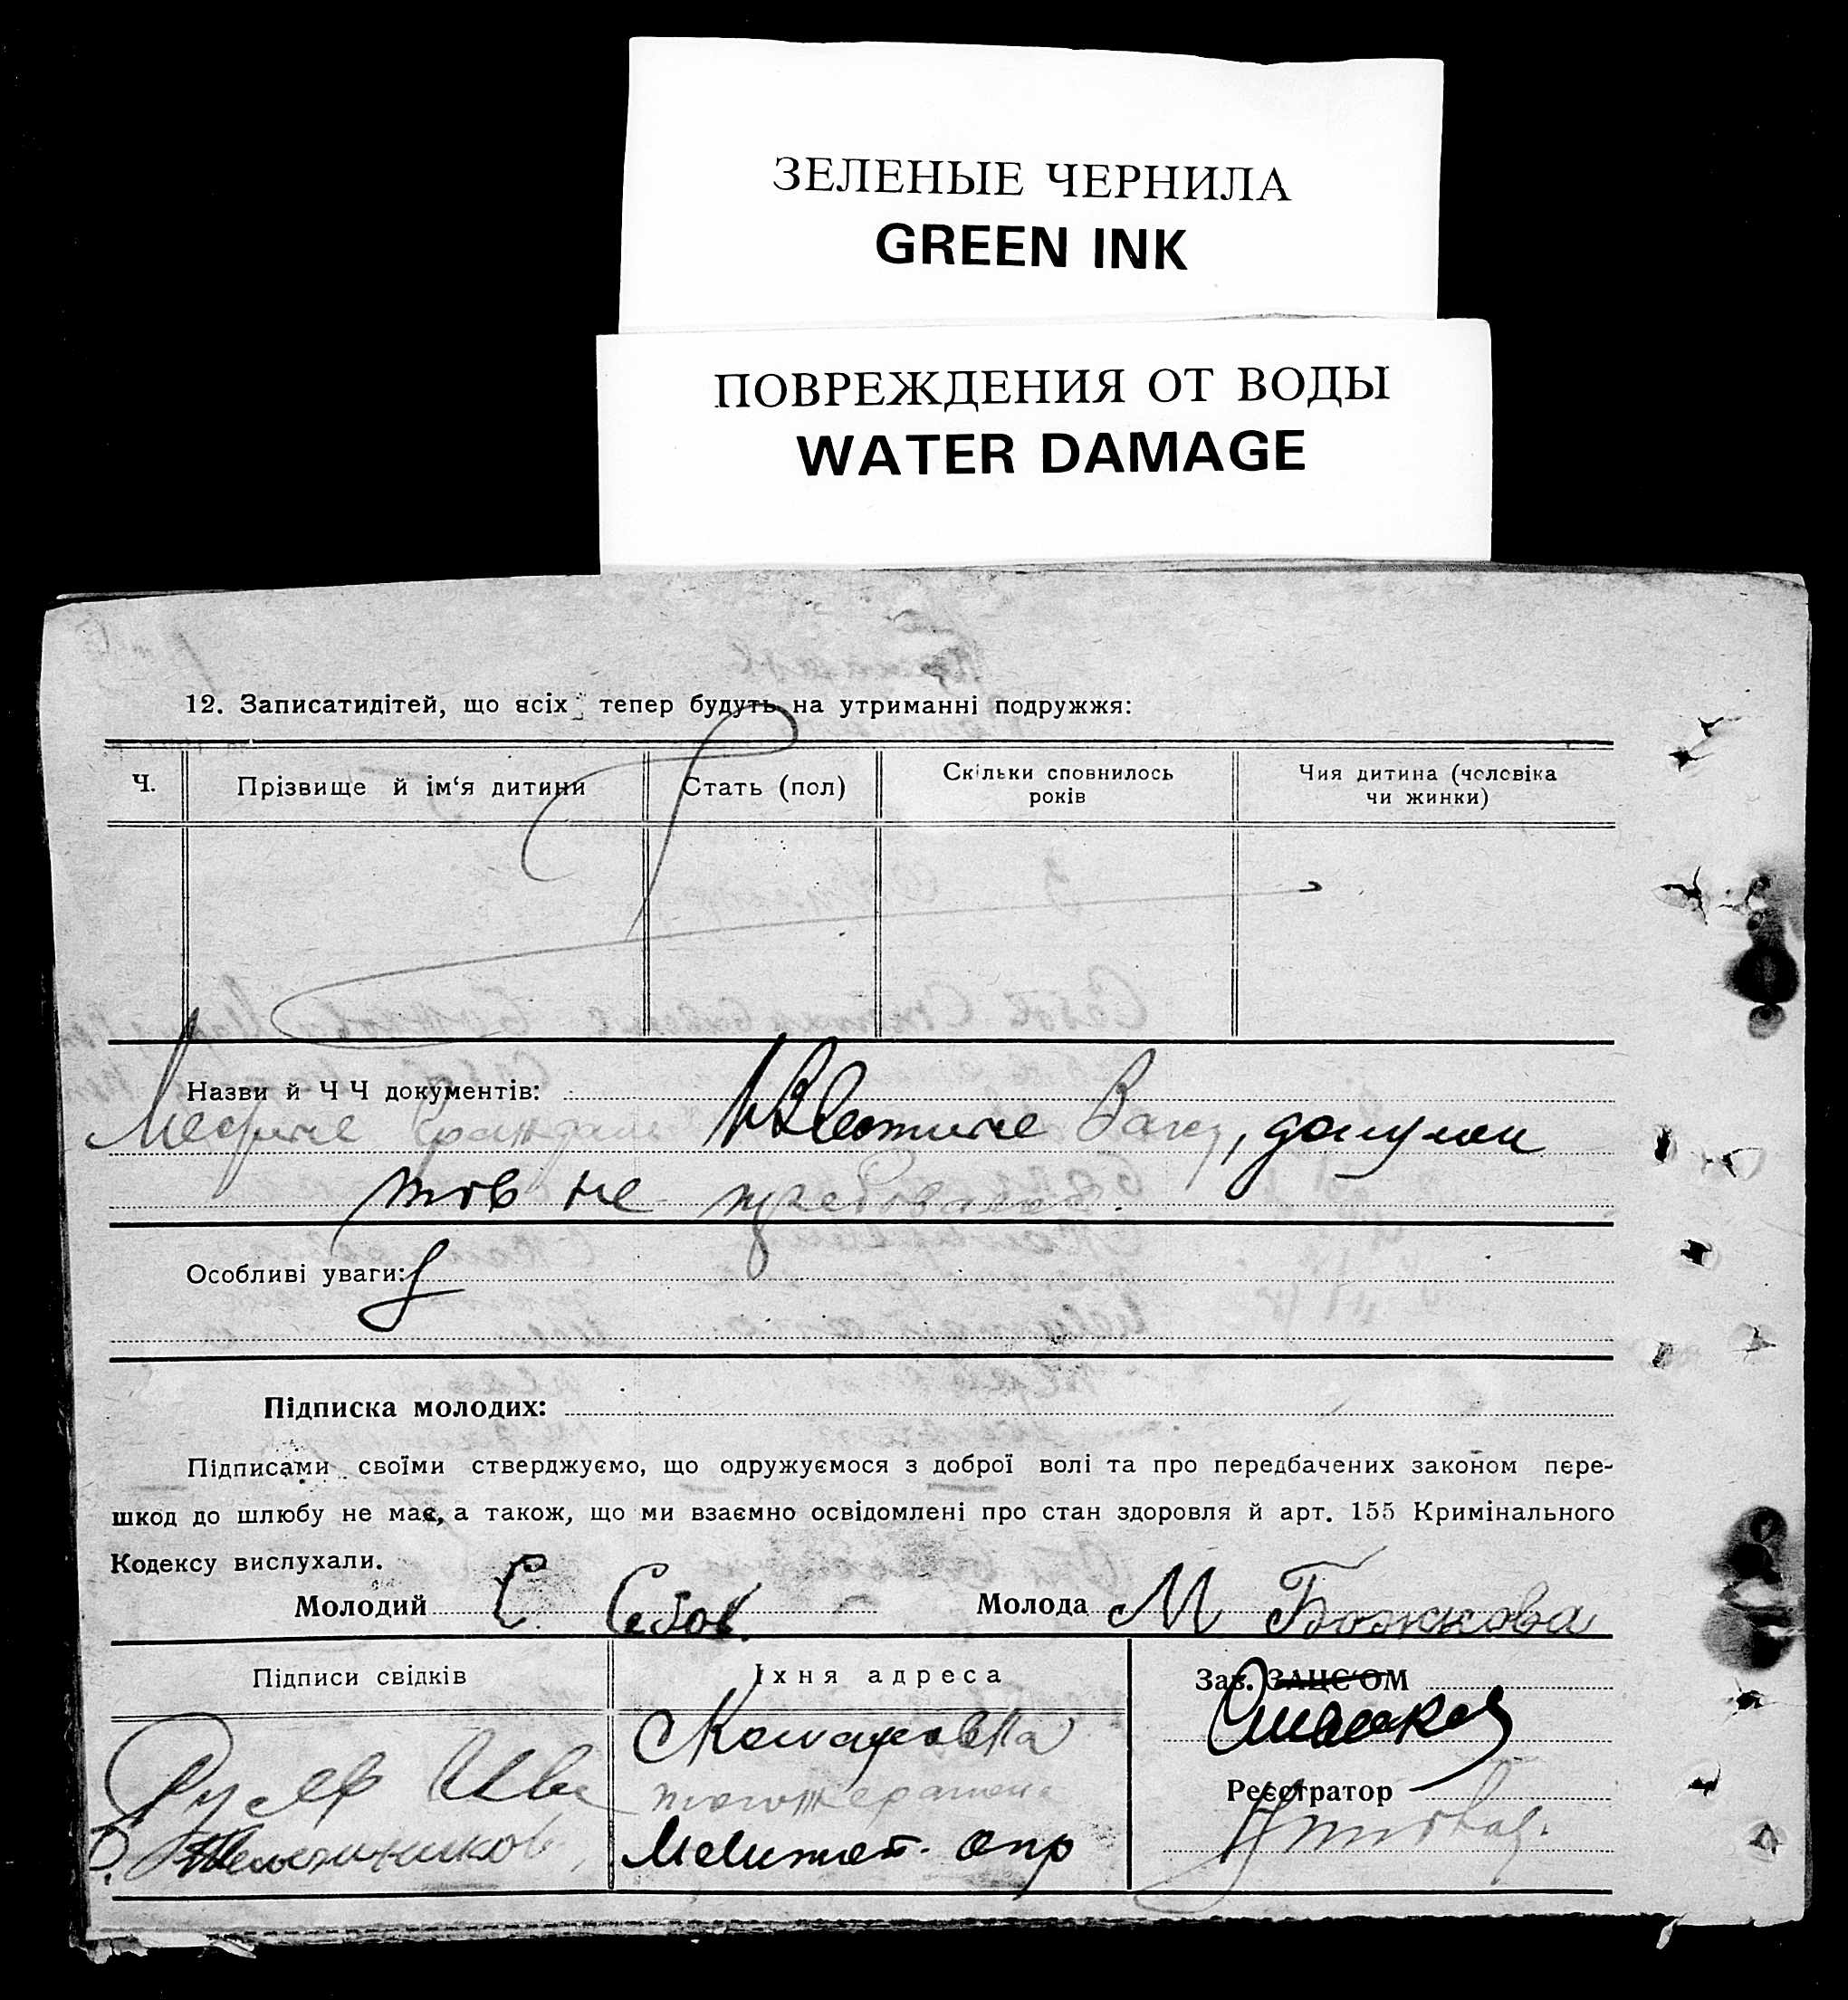 ЗЕЛЕНЫЕ ЧЕРНИЛА
GREEN INK
ПОВРЕЖДЕНИЯ ОТ ВОДЫ
WATER DAMAGE
12. Записатидітей, що всіх тепер будуть на утриманні подружжя:
Ч. Прізвище й ім‘я дитини Стать (пол) Скільки сповнилось років Чия дитина (чоловіка чи жинки)
Назви й Ч Ч документів:
Местные граждане Загсу, докумен
тов не требовалось.
Особливі уваги:
Підписка молодих:
Підписами своїми стверджуємо, що одружуємося з доброї волі та про передбачених законом пере-
шкод до шлюбу не має, а також, що ми взаємно освідомлені про стан здоровля й арт. 155 Кримінального
Кодексу вислухали.
Молодий С. Сабов. Молода М Божкова
Підписи свідків Іхня адреса Зав. ЗАЦС‘ОМ
Реєстратор
Мелитоп. окр